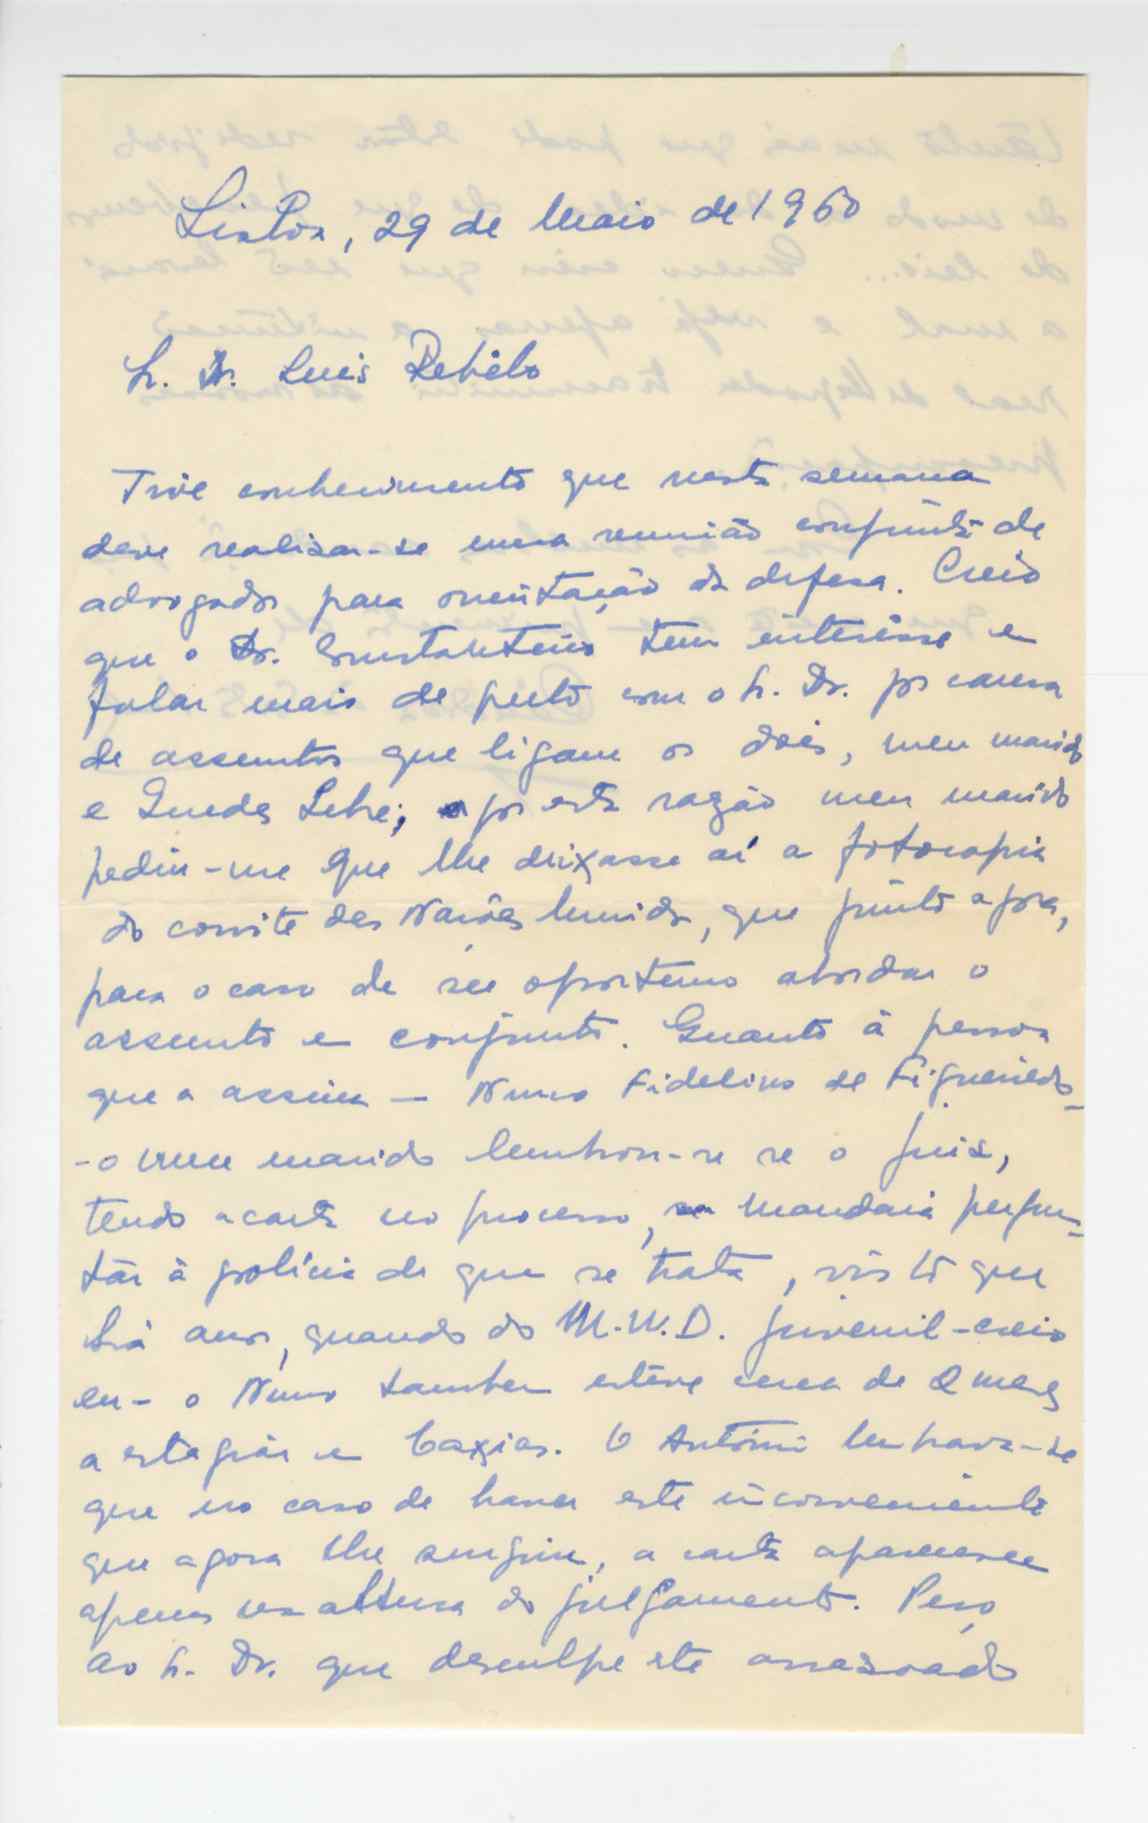 Lisboa, 29 de Maio de 1960
Sr. Dr. Luis Rebêlo
Tive conhecimento que nesta semana
deve realisar-se uma reunião conjunta de
advogados para orientação da defesa. Creio
que o Dr. Constantino tem interêsse em
falar mais de perto com o Sr. Dr. por causa
de assuntos que ligam os dois, meu marido
e Guedes Lebre; por esta razão meu marido
pediu-me que lhe deixasse aí a fotocopia
do convite das Nações Unidas, que junto agora,
para o caso de ser oportuno abordar o
assunto em conjunto. Quanto à pessoa
que a assina — Nuno Fidelino de Figueiredo -
- o meu marido lembrou-se se o juiz,
tendo a carta no processo, mandará pergun-
tar à polícia de que se trata, visto que
há anos, quando do M.U.D. juvenil - creio
eu - o Nuno tambem estêve cerca de 2 meses
a estagiar em Caxias. O António lembrava-se
que no caso de haver este inconveniente
que agora lhe surgiu, a carta aparecesse
apenas na altura do julgamento. Peço
ao Sr. Dr. que desculpe este arrazoado